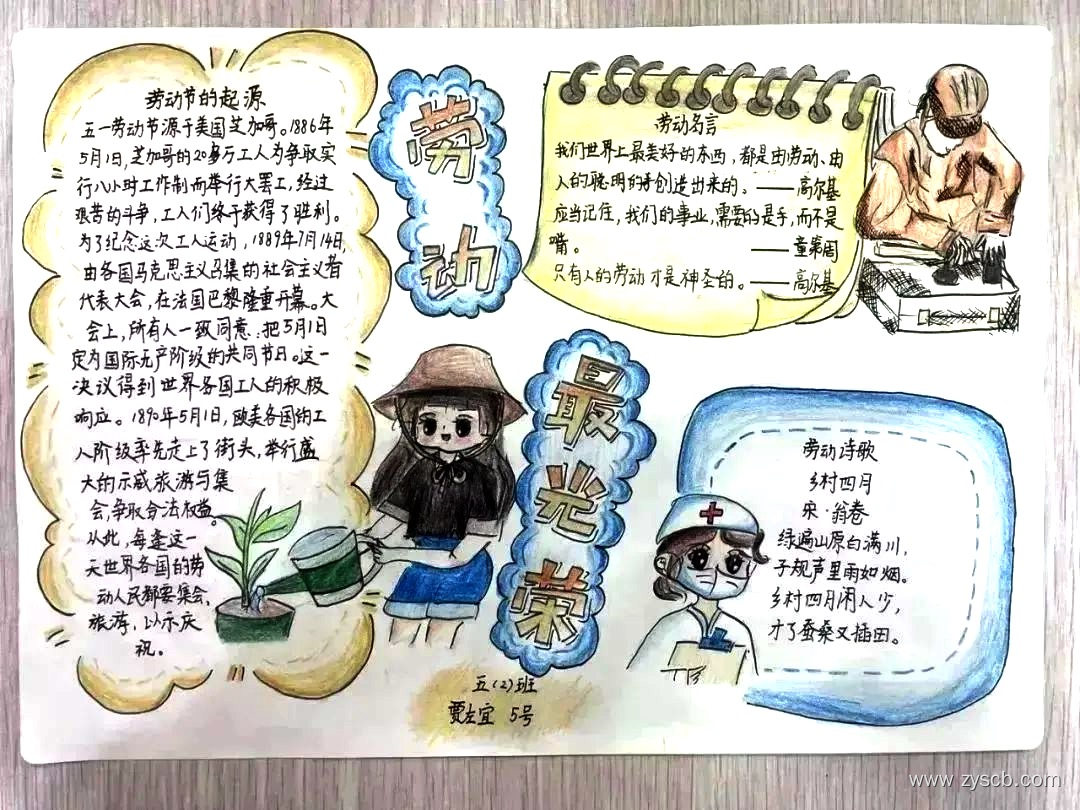 劳动节的起源
五一劳动节源于美国芝加哥。1886年
5月1日,芝加哥的20多万工人为争取实
行八小时工作制而举行大罢工,经过
艰苦的斗争,工人们终于获得了胜利。
为了纪念这次工人运动,1889年7月14日,
由各国马克思主义召集的社会主义者
代表大会,在法国巴黎隆重开幕。大
会上,所有人一致同意:把5月1日
定为国际无产阶级的共同节日。这一
决议得到世界各国工人的积极
响应。1890年5月1日,欧美各国的工
人阶级率先走上了街头,举行盛
大的示威旅游与集
会,争取合法权益。
从此,每逢这一
天世界各国的劳
动人民都要集会、
旅游,以示庆
祝。
劳动
劳动名言
我们世界上最美好的东西,都是由劳动、由
人的聪明的手创造出来的。——高尔基
应当记住,我们的事业,需要的是手,而不是
嘴。——童第周
只有人的劳动才是神圣的。——高尔基
最光荣
劳动诗歌
乡村四月
宋·翁卷
绿遍山原白满川,
子规声里雨如烟。
乡村四月闲人少,
才了蚕桑又插田。
五(2)班
贾左宜 5号
www.zyscb.com